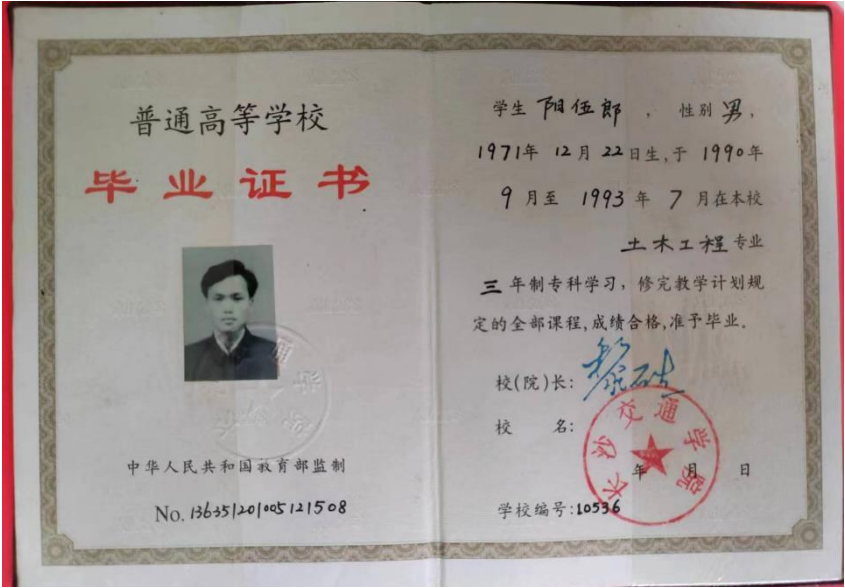 普通高等学校
毕业证书
中华人民共和国教育部监制
No. 136351201005121508
学生 阳伍郎 , 性别 男,
1971年 12月 22日生,于 1990年
9月至 1993年 7月在本校
土木工程 专业
三年制专科学习, 修完教学计划规
定的全部课程,成绩合格,准予毕业。
校(院)长:
校 名:
长沙交通学院
年 月 日
学校编号:10536